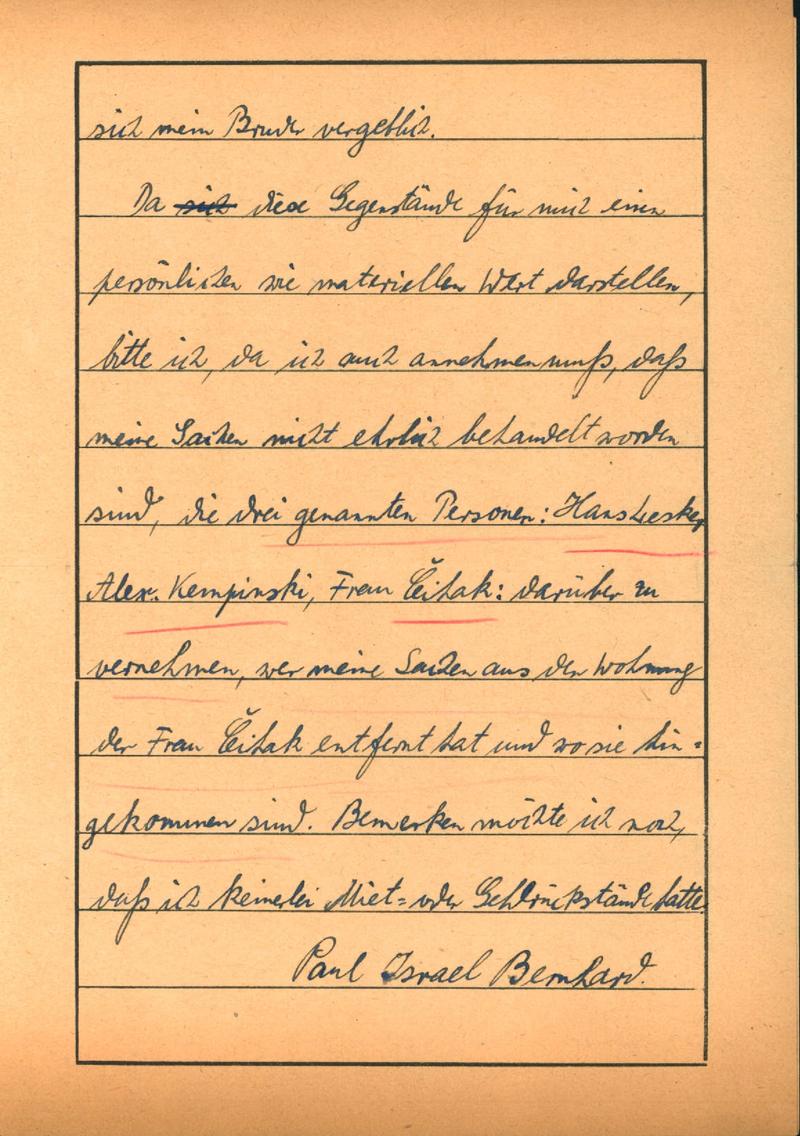 sich mein Bruder vergeblich.
Da sich diese Gegenstände für mich einen
persönlichen wie materiellen Wert darstellen,
bitte ich, da ich auch annehmen muß, daß
meine Sachen nicht ehrlich behandelt worden
sind, die drei genannten Personen: Hans Lesker,
Alex. Kempinski, Frau Čihak: darüber zu
vernehmen, wer meine Sachen aus der Wohnung
der Frau Čihak entfernt hat und wo sie hin=
gekommen sind. Bemerken möchte ich noch,
daß ich keinerlei Miet= oder Geldrückstände hatte.
Paul Israel Bernhard.